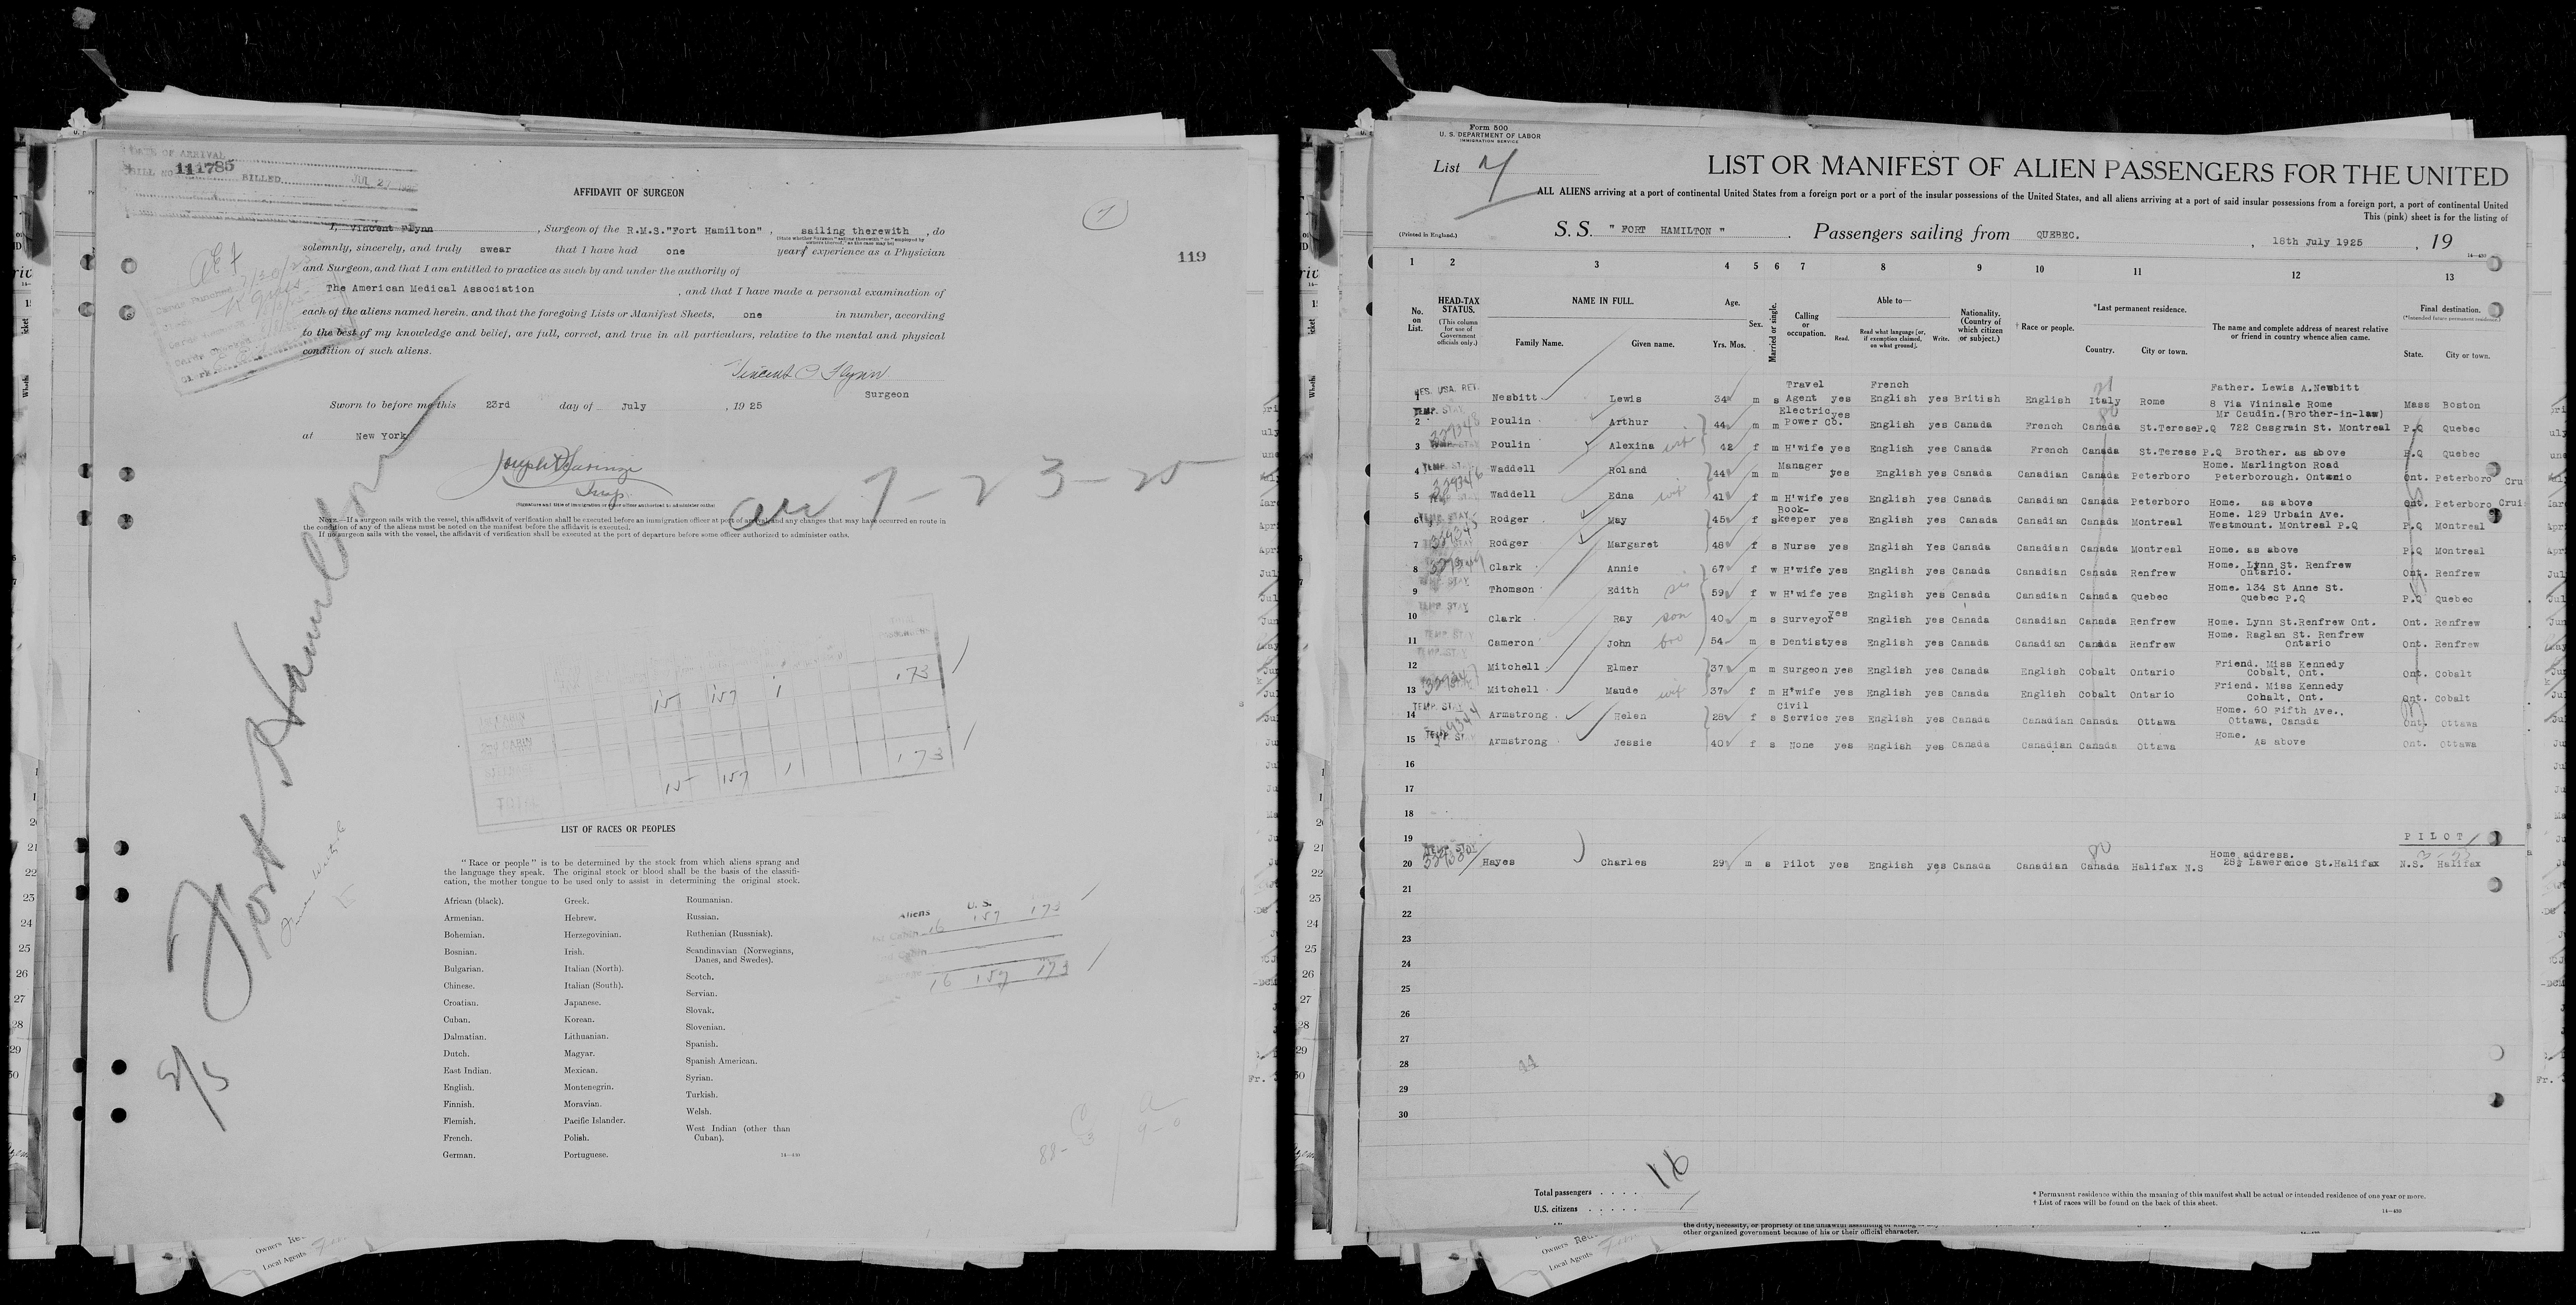 DATE OF ARRIVAL
BILL NO. 111785 BILLED JUL 2
AFFIDAVIT OF SURGEON
119
I, Vincent Flynn, Surgeon of the R.M.S."Fort Hamilton", sailing therewith, do
solemnly, sincerely, and truly swear that I have had one years' experience as a Physician
and Surgeon, and that I am entitled to practice as such by and under the authority of
The American Medical Association, and that I have made a personal examination of
each of the aliens named herein, and that the foregoing Lists or Manifest Sheets, one in number, according
to the best of my knowledge and belief, are full, correct, and true in all particulars, relative to the mental and physical
condition of such aliens.
Surgeon
Sworn to before me this 23rd day of July, 1925
at New York
(Signature and title of immigration or other officer authorized to administer oaths)
NOTE.—If a surgeon sails with the vessel, this affidavit of verification shall be executed before an immigration officer at port of arrival, and any changes that may have occurred en route in
the condition of any of the aliens must be noted on the manifest before the affidavit is executed.
If no surgeon sails with the vessel, the affidavit of verification shall be executed at the port of departure before some officer authorized to administer oaths.
arr 7-23-25
Fort Hamilton
15 157 1 173
TOTAL 15 157 1 173
LIST OF RACES OR PEOPLES
"Race or people" is to be determined by the stock from which aliens sprang and
the language they speak. The original stock or blood shall be the basis of the classifi-
cation, the mother tongue to be used only to assist in determining the original stock.
African (black). Greek. Roumanian.
Armenian. Hebrew. Russian.
Bohemian. Herzegovinian. Ruthenian (Russniak).
Bosnian. Irish. Scandinavian (Norwegians,
Danes, and Swedes).
Bulgarian. Italian (North). Scotch.
Chinese. Italian (South). Servian.
Croatian. Japanese. Slovak.
Cuban. Korean. Slovenian.
Dalmatian. Lithuanian. Spanish.
Dutch. Magyar. Spanish American.
East Indian. Mexican. Syrian.
English. Montenegrin. Turkish.
Finnish. Moravian. Welsh.
Flemish. Pacific Islander. West Indian (other than
Cuban).
French. Polish.
German. Portuguese.
Aliens U. S.
16 157 173
16 157 173
Form 500
U. S. DEPARTMENT OF LABOR
IMMIGRATION SERVICE
List
LIST OR MANIFEST OF ALIEN PASSENGERS FOR THE UNITED
ALL ALIENS arriving at a port of continental United States from a foreign port or a port of the insular possessions of the United States, and all aliens arriving at a port of said insular possessions from a foreign port, a port of continental United
This (pink) sheet is for the listing of
(Printed in England.)
S. S. " FORT HAMILTON " Passengers sailing from QUEBEC. , 18th July 1925 , 19
1 2 3 4 5 6 7 8 9 10 11 12 13
No. on List.
HEAD-TAX STATUS.
(This column for use of Government officials only.)
NAME IN FULL.
Family Name. Given name.
Age.
Yrs. Mos.
Sex.
Married or single.
Calling or occupation.
Able to—
Read. Read what language [or, if exemption claimed, on what ground]. Write.
Nationality. (Country of which citizen or subject.)
† Race or people.
*Last permanent residence.
Country. City or town.
The name and complete address of nearest relative or friend in country whence alien came.
Final destination.
(*Intended future permanent residence.)
State. City or town.
RES. USA. RET.
1 Nesbitt Lewis 34 m s Travel Agent yes French English yes British English Italy Rome Father. Lewis A.Nesbitt 8 Via Vininale Rome Mass Boston
2 Poulin Arthur 44 m m Electric Power Co. yes English yes Canada French Canada St.Terese P.Q Mr Caudin.(Brother-in-law) 722 Casgrain St. Montreal P.Q Quebec
3 Poulin Alexina wife 42 f m H'wife yes English yes Canada French Canada St.Terese P.Q Brother. as above P.Q Quebec
4 Waddell Roland 44 m m Manager yes English yes Canada Canadian Canada Peterboro Home. Marlington Road Peterborough. Ontario Ont. Peterboro
5 Waddell Edna wife 41 f m H'wife yes English yes Canada Canadian Canada Peterboro Home. as above Ont. Peterboro
6 Rodger May 45 f s Book-keeper yes English yes Canada Canadian Canada Montreal Home. 129 Urbain Ave. Westmount. Montreal P.Q P.Q Montreal
7 Rodger Margaret 48 f s Nurse yes English Yes Canada Canadian Canada Montreal Home. as above P.Q Montreal
8 Clark Annie 67 f w H'wife yes English yes Canada Canadian Canada Renfrew Home. Lynn St. Renfrew Ontario. Ont. Renfrew
9 Thomson Edith sis 59 f w H'wife yes English yes Canada Canadian Canada Quebec Home. 134 St Anne St. Quebec P.Q P.Q Quebec
10 Clark Ray son 40 m s Surveyor yes English yes Canada Canadian Canada Renfrew Home. Lynn St.Renfrew Ont. Ont. Renfrew
11 Cameron John bro 54 m s Dentist yes English yes Canada Canadian Canada Renfrew Home. Raglan St. Renfrew Ontario Ont. Renfrew
12 Mitchell Elmer 37 m m Surgeon yes English yes Canada English Cobalt Ontario Friend. Miss Kennedy Cobalt, Ont. Ont. Cobalt
13 Mitchell Maude wife 37 f m H'wife yes English yes Canada English Cobalt Ontario Friend. Miss Kennedy Cobalt, Ont. Ont. Cobalt
14 Armstrong Helen 28 f s Civil Service yes English yes Canada Canadian Canada Ottawa Home. 60 Fifth Ave., Ottawa, Canada Ont. Ottawa
15 Armstrong Jessie 40 f s None yes English yes Canada Canadian Canada Ottawa Home. As above Ont. Ottawa
16
17
18
19 PILOT
20 Hayes Charles 29 m s Pilot yes English yes Canada Canadian Canada Halifax N.S Home address. 25½ Lawerence St.Halifax N.S. Halifax
21
22
23
24
25
26
27
28
29
30
Total passengers . . . . 16
U.S. citizens . . . . .
* Permanent residence within the meaning of this manifest shall be actual or intended residence of one year or more.
† List of races will be found on the back of this sheet.